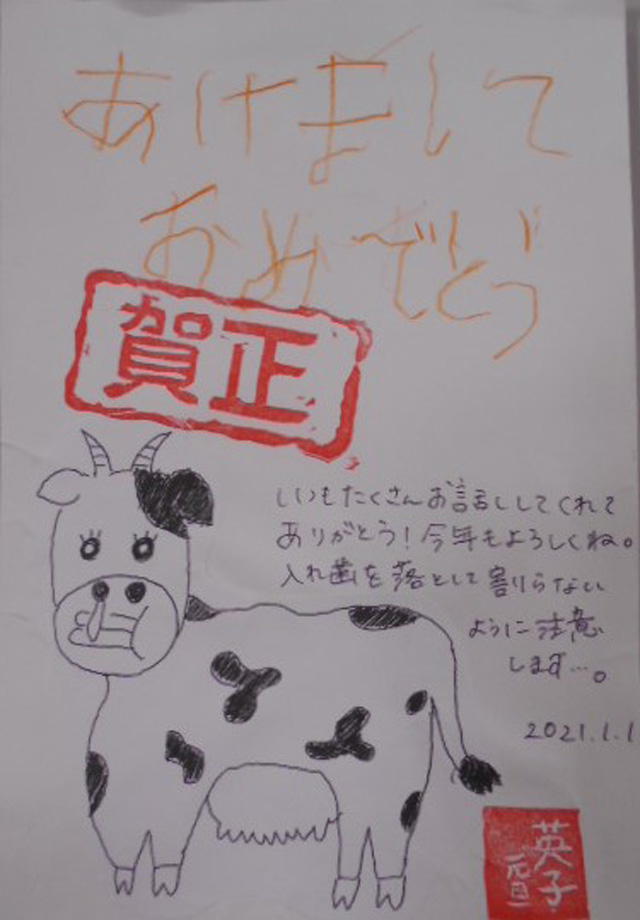 あけまして
おめでとう
賀正
いつもたくさんお話ししてくれて
ありがとう！今年もよろしくね。
入れ歯を落として割らない
ように注意
します…。
2021.1.1
英子
元旦